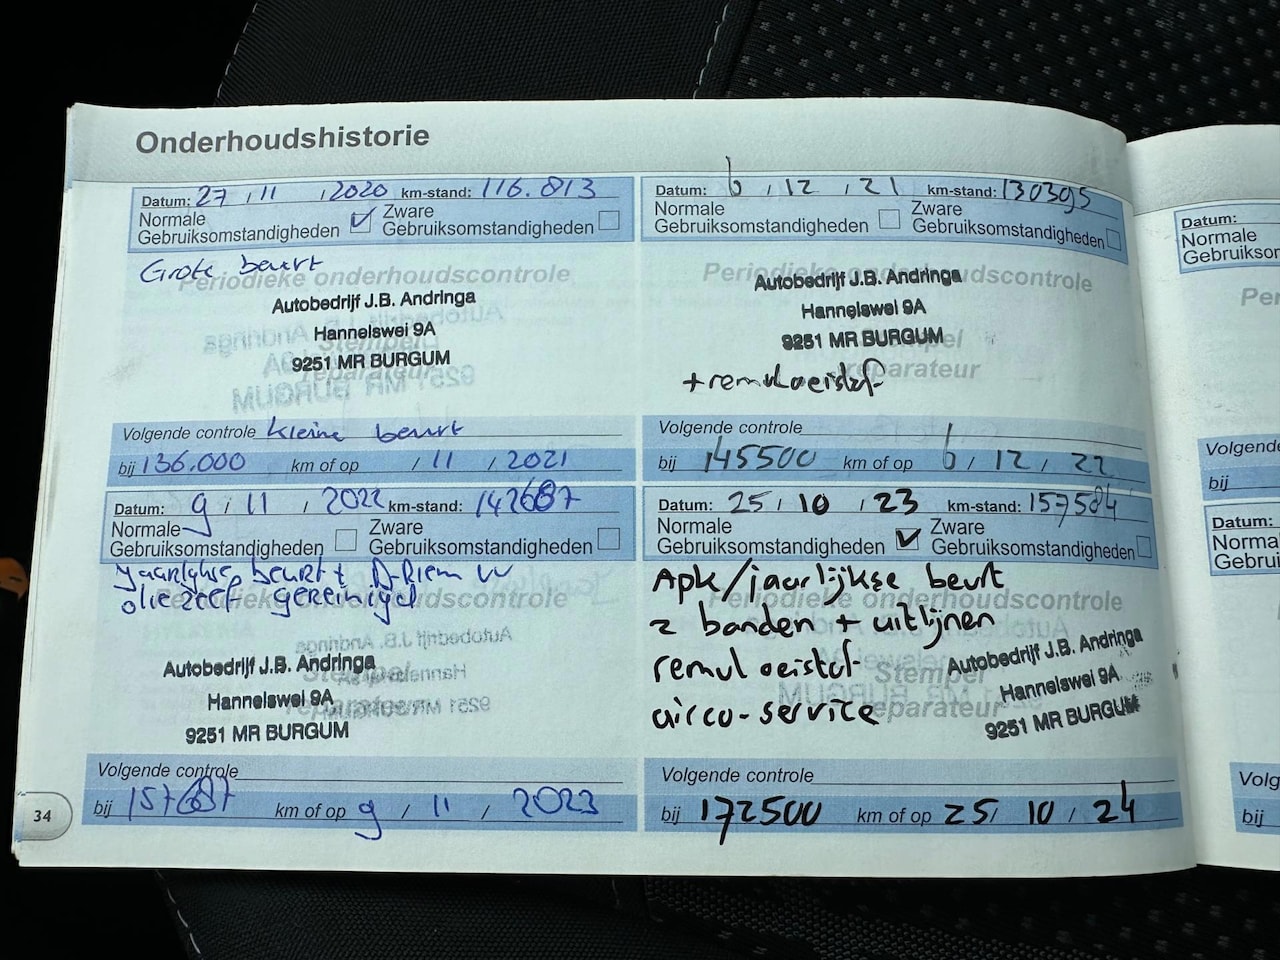 Onderhoudshistorie
Datum: 27 / 11 / 2020 km-stand: 116.813
Normale
Gebruiksomstandigheden
Zware
Gebruiksomstandigheden
Grote beurt
Periodieke onderhoudscontrole
Autobedrijf J.B. Andringa
Hannelswei 9A
Stempel
9251 MR BURGUM
reparateur
Volgende controle kleine beurt
bij 136.000 km of op / 11 / 2021
Datum: 6 / 12 / 21 km-stand: 130395
Normale
Gebruiksomstandigheden
Zware
Gebruiksomstandigheden
Periodieke onderhoudscontrole
Autobedrijf J.B. Andringa
Hannelswei 9A
Stempel
9251 MR BURGUM
reparateur
+ remvloeistof
Volgende controle
bij 145500 km of op 6 / 12 / 22
Datum: 9 / 11 / 2022 km-stand: 142687
Normale
Gebruiksomstandigheden
Zware
Gebruiksomstandigheden
jaarlijkse beurt + A-Riem vv
oliezeef gereinigd
Periodieke onderhoudscontrole
Autobedrijf J.B. Andringa
Stempel
Hannelswei 9A
reparateur
9251 MR BURGUM
Volgende controle
bij 157687 km of op 9 / 11 / 2023
Datum: 25 / 10 / 23 km-stand: 157584
Normale
Gebruiksomstandigheden
Zware
Gebruiksomstandigheden
Apk/jaarlijkse beurt
Periodieke onderhoudscontrole
2 banden + uitlijnen
remvloeistof
Stempel
airco-service
reparateur
Autobedrijf J.B. Andringa
Hannelswei 9A
9251 MR BURGUM
Volgende controle
bij 172500 km of op 25/ 10 / 24
34
Datum:
Normale
Gebruiksom
Per
Volgende
bij
Datum:
Norma
Gebrui
Volg
bij